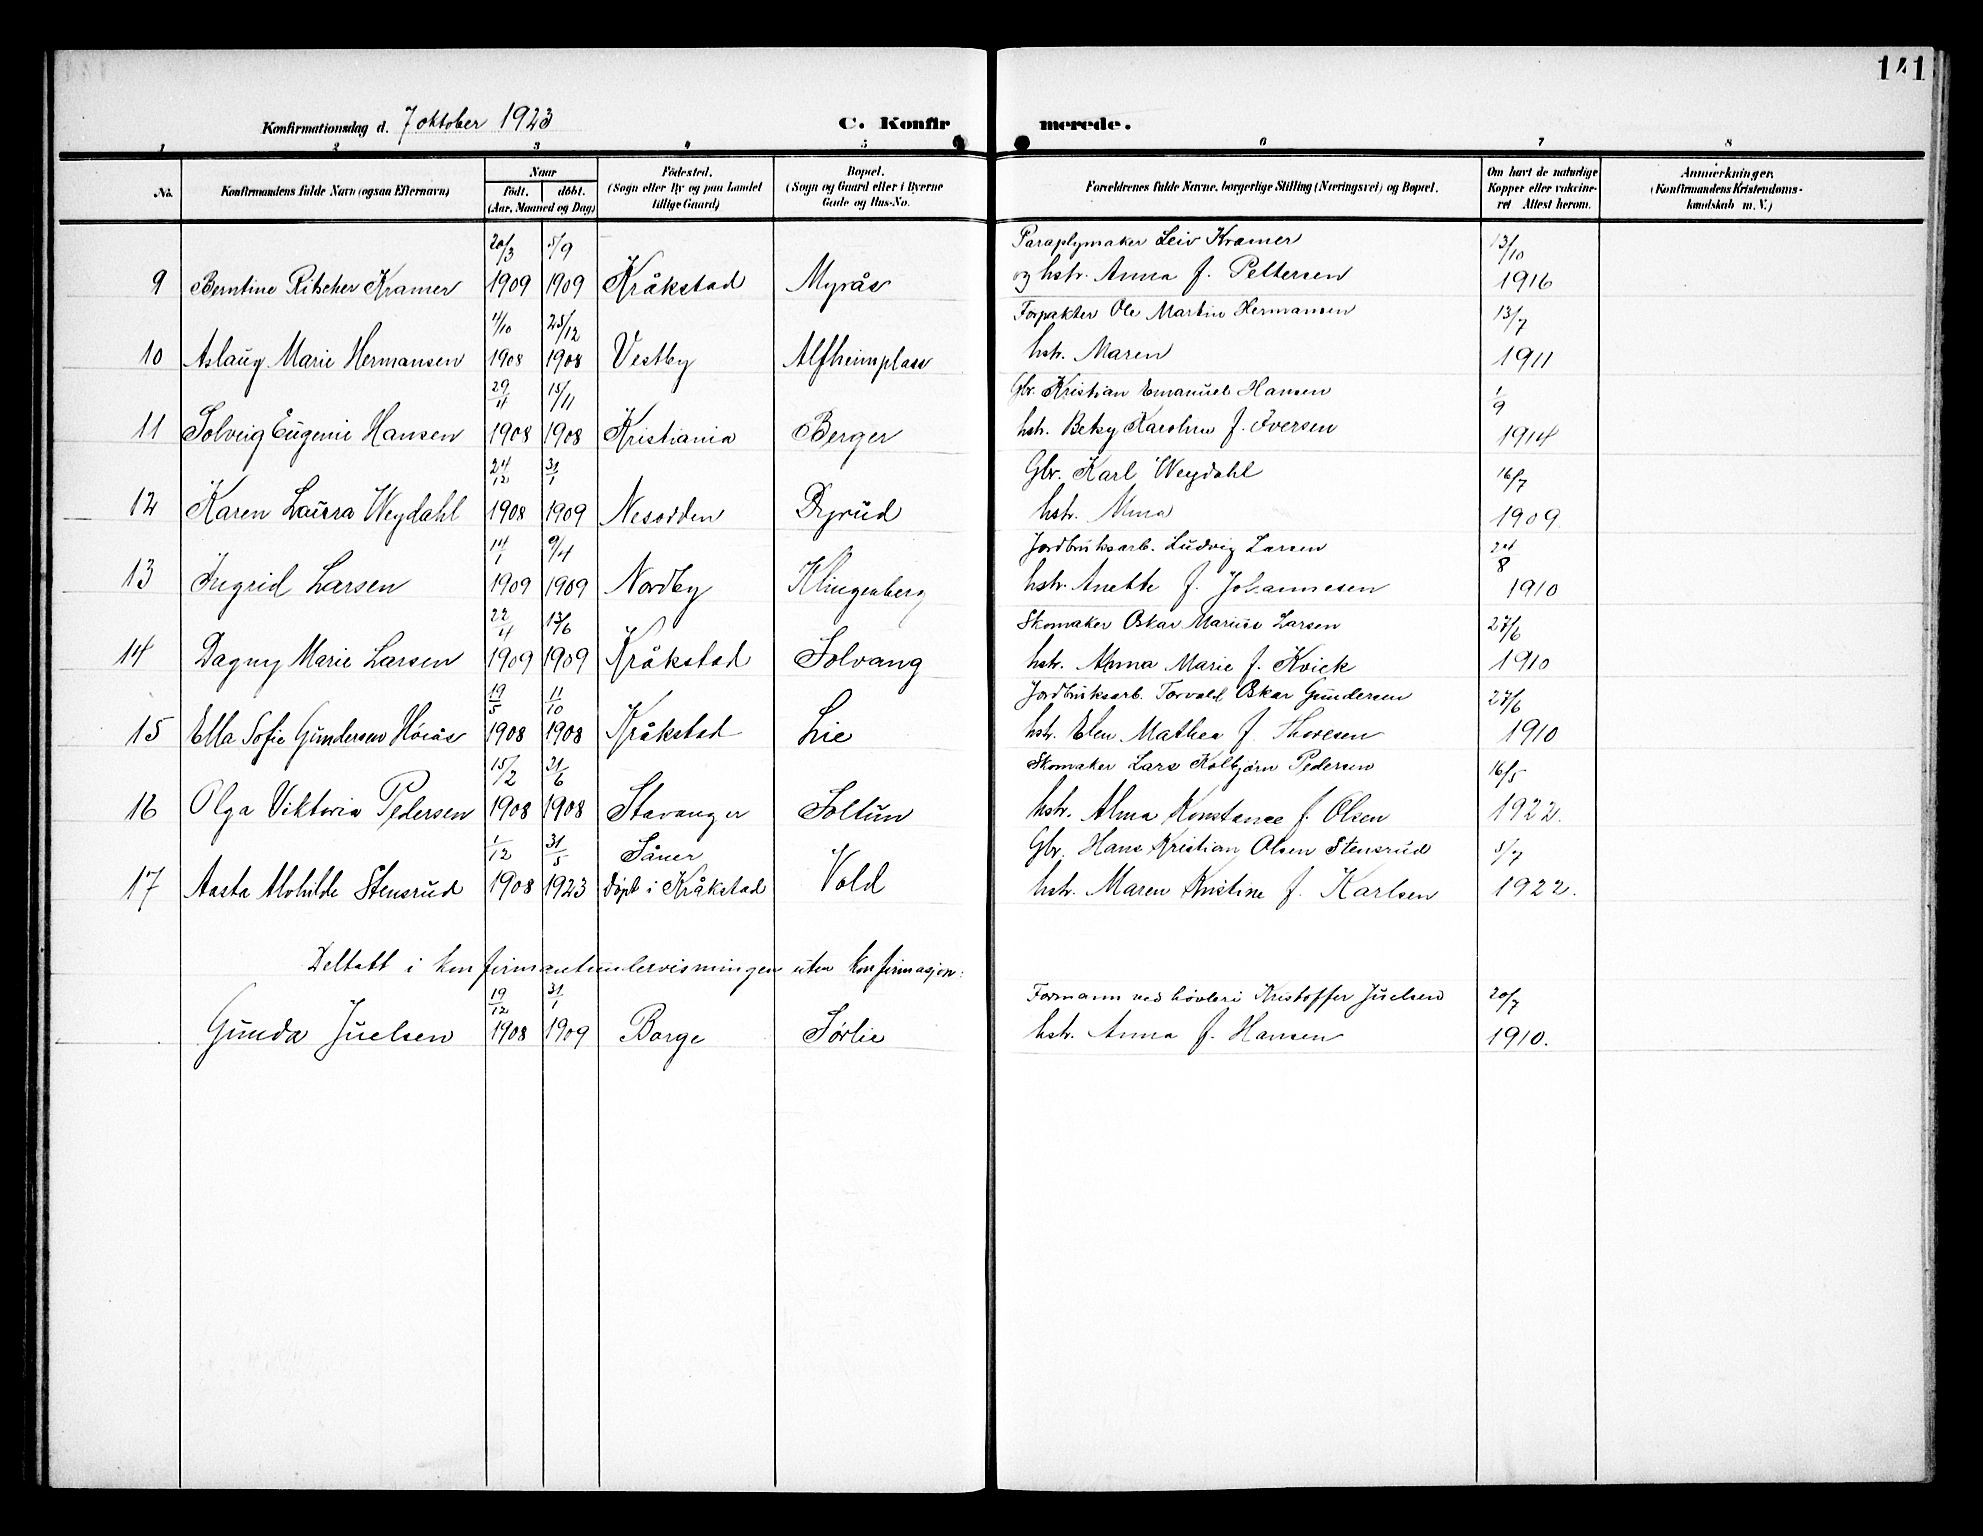 141
Konfirmationsdag d. 7 oktober 1923
C. Konfirmerede.
1 2 3 4 5 6 7 8
No. Konfirmandens fulde Navn (ogsaa Efternavn) Naar født. døbt. (Aar, Maaned og Dag) Fødested. (Sogn eller By og paa Landet tillige Gaard) Bopæl. (Sogn og Gaard eller i Byerne Gade og Hus-No. Forældrenes fulde Navne, borgerlige Stilling (Næringsvei) og Bopæl. Om havt de naturlige Kopper eller vakcineret Attest herom. Anmærkninger. (Konfirmandens Kristendomskundskab m. V.)
20/3 5/9 Paraplymaker Leiv Kramer 13/10
9 Berntine Ritscher Kramer 1909 1909 Kråkstad Myrås og hstr. Anna f. Pettersen 1916
11/10 25/12 Forpakter Ole Martin Hermansen 13/7
10 Aslaug Marie Hermansen 1908 1908 Vestby Alfheimplass hstr. Maren 1911
29/4 15/11 Gbr. Kristian Emanuel Hansen 1/9
11 Solveig Eugenie Hansen 1908 1908 Kristiania Berger hstr. Betsy Karoline f. Iversen 1914
24/12 31/1 Gbr. Karl Weydahl 16/7
12 Karen Laura Weydahl 1908 1909 Nesodden Dyrud hstr. 1909
14/1 9/4 Jordbruksarb. Ludvig Larsen 24/8
13 Ingrid Larsen 1909 1909 Nordby Klingenberg hstr. Anette f. Johannesen 1910
22/4 13/6 Skomaker Oskar Marius Larsen 27/6
14 Dagny Marie Larsen 1909 1909 Kråkstad Solvang hstr. Anna Marie f. Kvick 1910
19/5 11/10 Jordbruksarb. Torvald Oskar Gundersen 27/6
15 Ella Sofie Gundersen Høiås 1908 1908 Kråkstad Lie hstr. Elen Mathea f. Thoresen 1910
15/2 21/6 Skomaker Lars Kolbjørn Pedersen 16/5
16 Olga Viktoria Pedersen 1908 1908 Stavanger Soltun hstr. Alma Konstance f. Olsen 1922.
1/12 31/5 Såner Gbr. Hans Kristian Olsen Stensrud 5/7
17 Aasta Alvhilde Stensrud 1908 1923 døpt i Kråkstad Vold hstr. Maren Kristine f. Karlsen 1922.
Deltatt i konfirmantundervisningen uten konfirmasjon:
19/12 31/1 Formann ved høvleri Kristoffer Juelsen 20/7
Gunda Juelsen 1908 1909 Borge Sørlie hstr. Anna f. Hansen 1910.